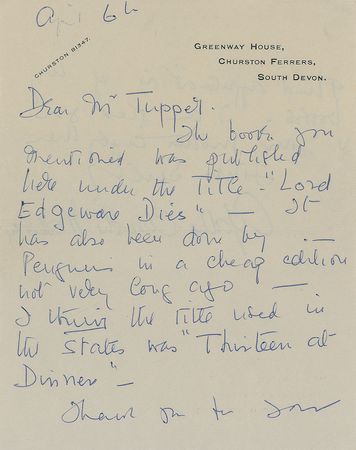 April 6th
CHURSTON 81347.
GREENWAY HOUSE,
CHURSTON FERRERS,
SOUTH DEVON.
Dear Mr Tupper.
The book you
mentioned was published
here under the Title - "Lord
Edgeware Dies" — It
has also been done by
Penguin in a cheap edition
not very long ago —
I think the title used in
the States was "Thirteen at
Dinner" —
Thank you for your